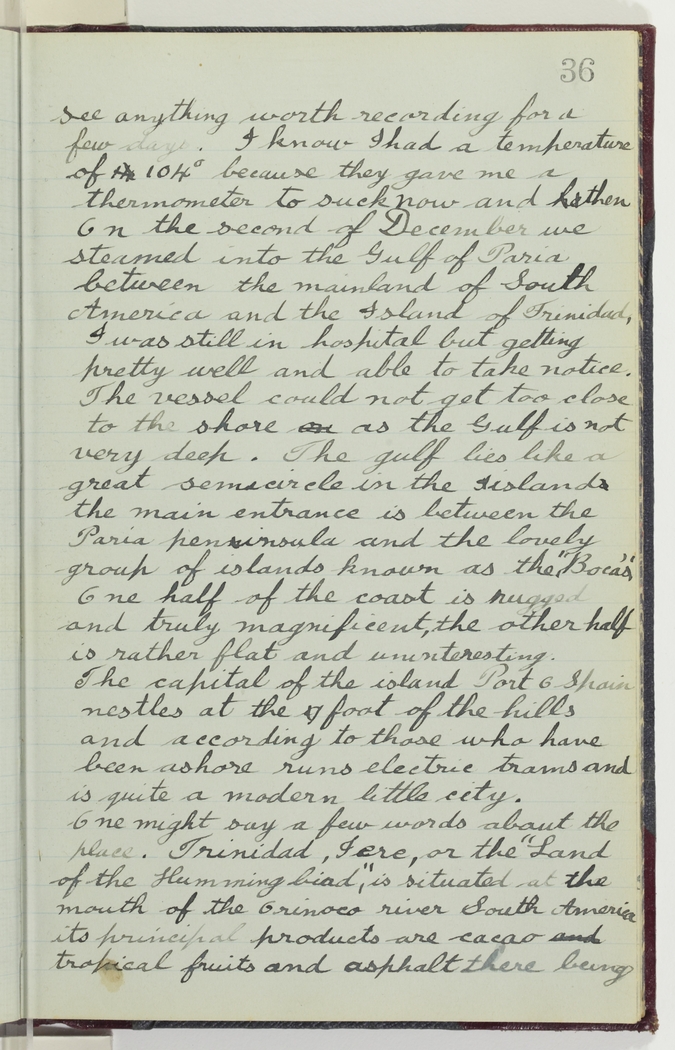 36
see anything worth recording for a
few days. I know I had a temperature
of 104° because they gave me a
thermometer to suck now and then
On the second of December we
steamed into the Gulf of Paria
between the mainland of South
America and the Island of Trinidad,
I was still in hospital but getting
pretty well and able to take notice.
The vessel could not get too close
to the shore as the Gulf is not
very deep. The gulf lies like a
great semicircle in the island
the main entrance is between the
Paria penninsula and the lovely
group of islands known as the "Boca's"
One half of the coast is rugged
and truly magnificent, the other half
is rather flat and uninteresting.
The capital of the island Port O Spain
nestles at the foot of the hills
and according to those who have
been ashore runs electric trams and
is quite a modern little city.
One might say a few words about the
place. Trinidad, Iere, or the "Land
of the Humming bird", is situated at the
mouth of the Orinoco river South America
its principal products are cacao
tropical fruits and asphalt there being